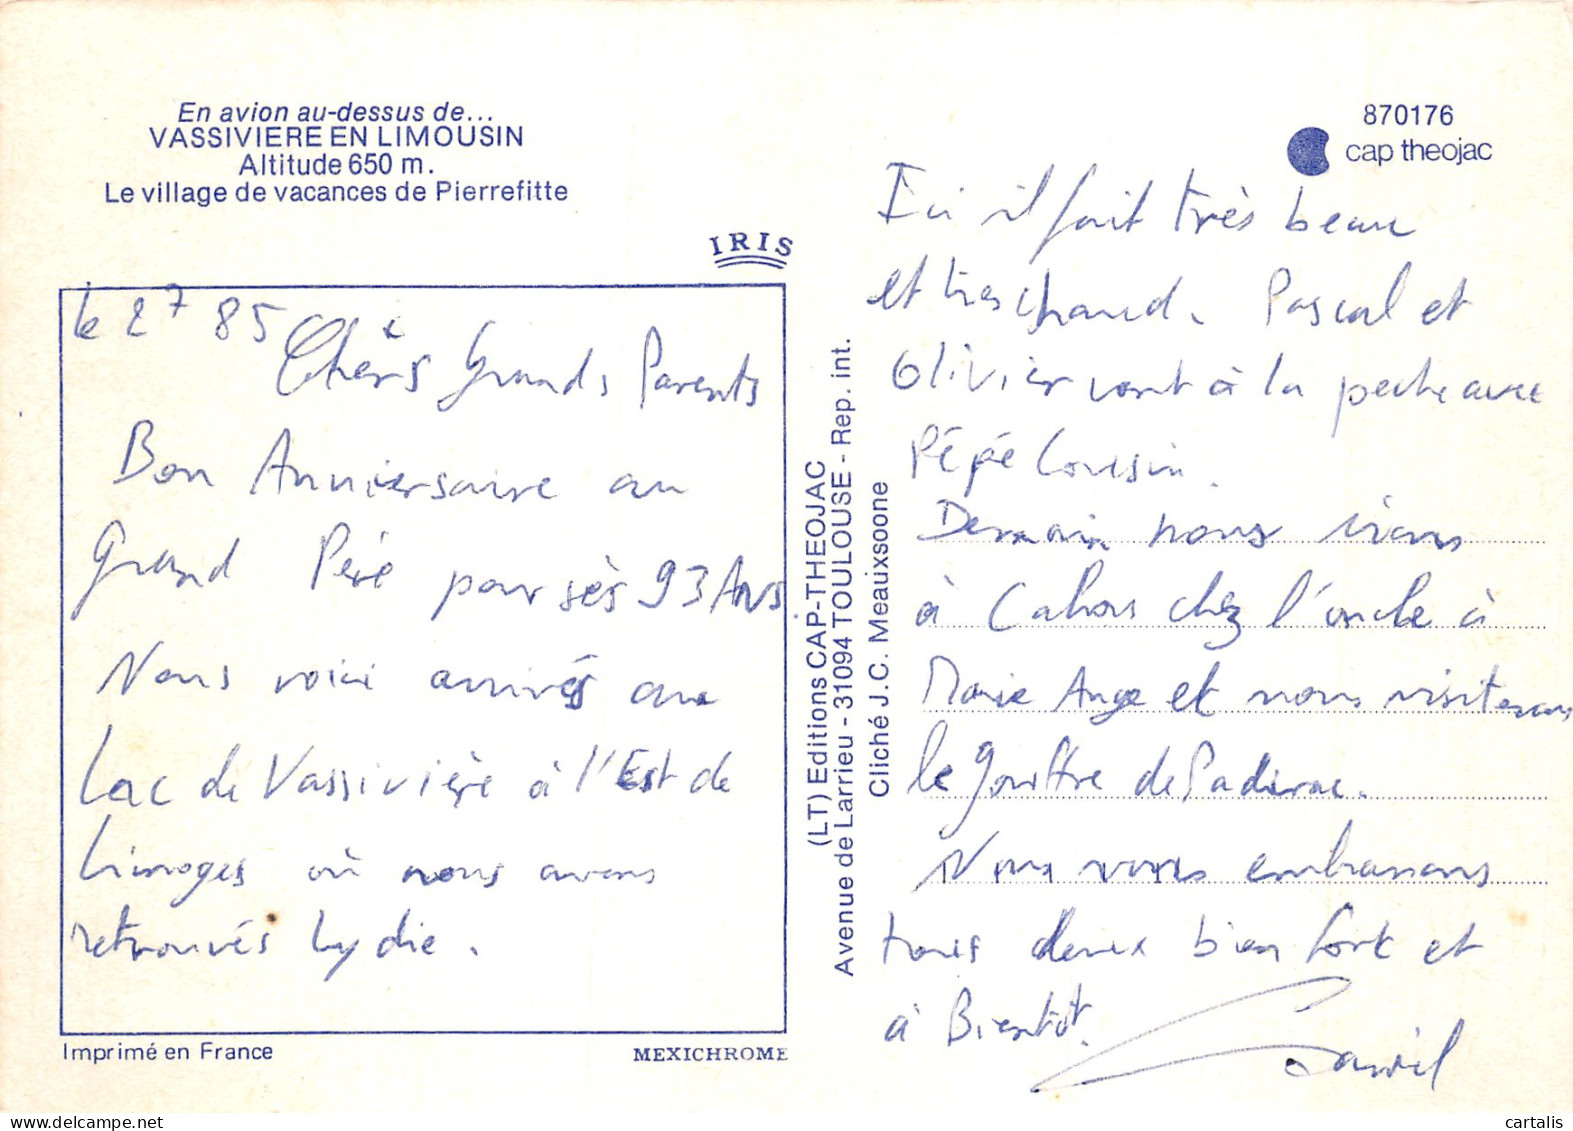 En avion au-dessus de...
VASSIVIERE EN LIMOUSIN
Altitude 650 m.
Le village de vacances de Pierrefitte
IRIS
le 2 7 85
Chèrs Grands Parents
Bon Anniversaire au
Grand Père pour sès 93 Ans
Nous voici arrivés au
Lac de Vassivière à l'Est de
Limoges où nous avons
retrouvés Lydie.
Imprimé en France
MEXICHROME
(LT) Editions CAP-THEOJAC
Avenue de Larrieu - 31094 TOULOUSE - Rep. int.
Cliché J.C. Meauxsoone
870176
cap theojac
Ici il fait très beau
et très chaud. Pascal et
Olivier vont à la peche avec
Pépé Cousin.
Demain nous irons
à Cahors chez l'oncle à
Marie Ange et nous visiterons
le gouffre de Padirac.
Nous vous embrassons
tous deux bien fort et
à Bientôt.
cartalis.com